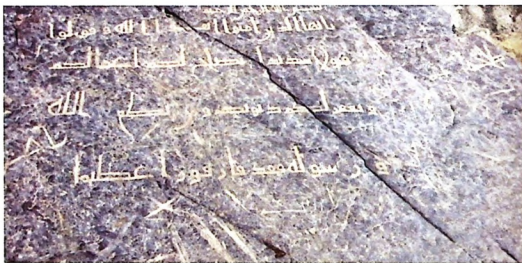 يايها الذين امنوا اتقوا الله وقولوا
قولا سديدا يصلح لكم اعملكم
ويغفر لكم ذنوبكم ومن يطع الله
ورسوله فقد فاز فوزا عظيما